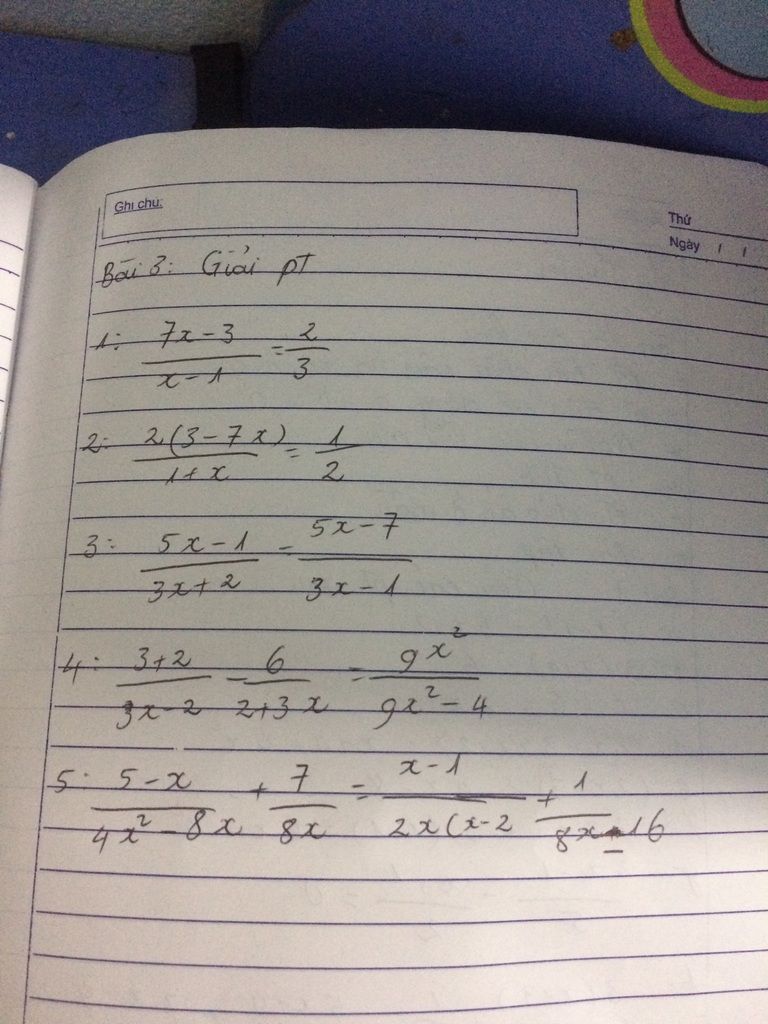 Ghi chú:
Thứ
Ngày / /
Bài 3: Giải pT
1: (7x-3)/(x-1) = 2/3
2: 2(3-7x)/(1+x) = 1/2
3: (5x-1)/(3x+2) = (5x-7)/(3x-1)
4: (3+2)/(3x-2) - 6/(2+3x) = 9x²/(9x²-4)
5: (5-x)/(4x²-8x) + 7/(8x) = (x-1)/(2x(x-2) + 1/(8x-16)